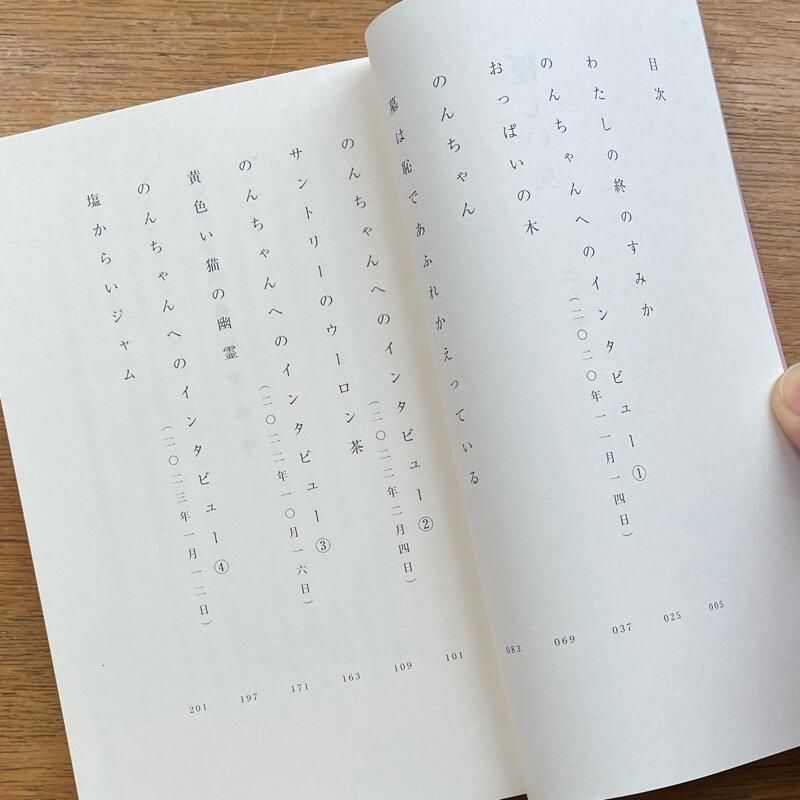 目次
わたしの終のすみか 005
のんちゃんへのインタビュー①(二〇二〇年一一月一四日) 025
おっぱいの木 037
のんちゃん 069
墓は恥であふれかえっている 083
のんちゃんへのインタビュー②(二〇二二年二月四日) 101
サントリーのウーロン茶 109
のんちゃんへのインタビュー③(二〇二二年一〇月一六日) 163
黄色い猫の幽霊 171
のんちゃんへのインタビュー④(二〇二三年一月一二日) 197
塩からいジャム 201